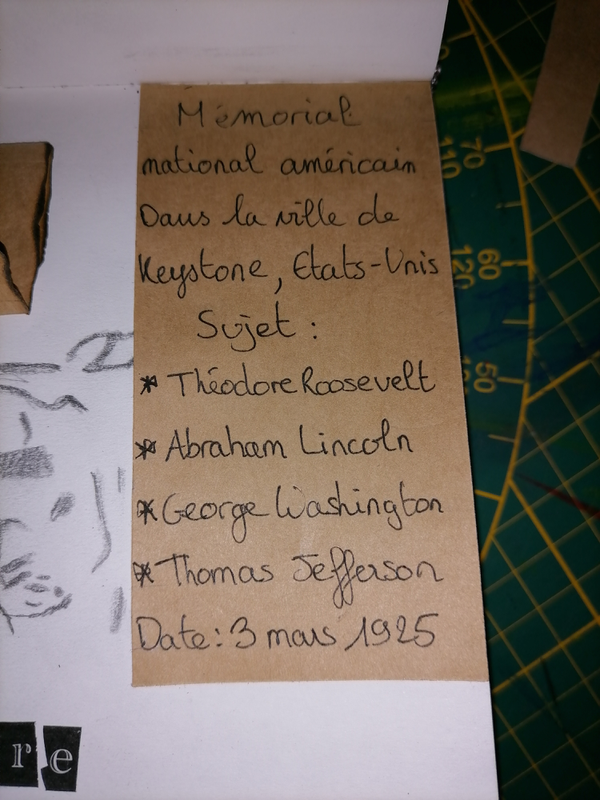 Mémorial
national américain
Dans la ville de
Keystone, Etats-Unis
Sujet :
* Théodore Roosevelt
* Abraham Lincoln
* George Washington
* Thomas Jefferson
Date : 3 mars 1925
re
110
70
120
60
50